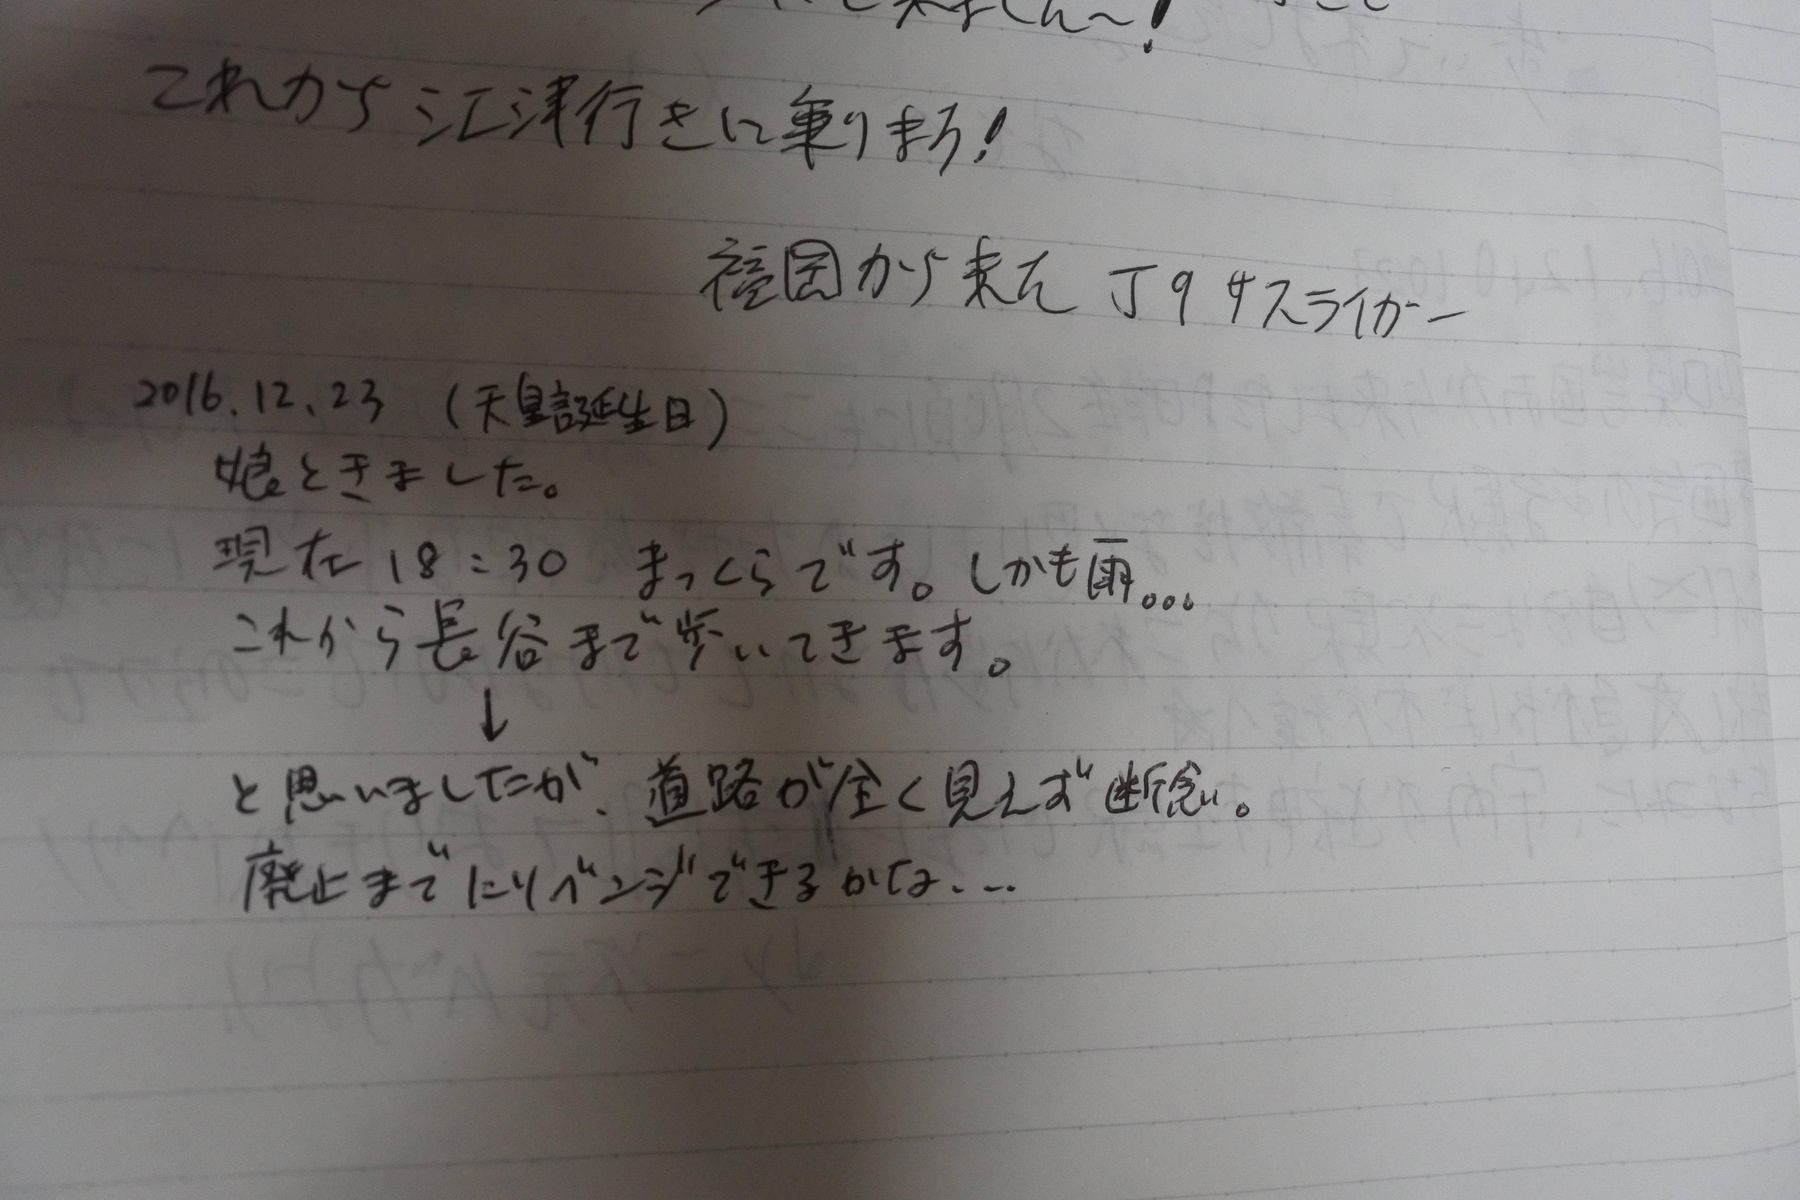 これから江津行きに乗りまろ!
福岡から来た J9 サスライガー
2016.12.23 (天皇誕生日)
娘ときました。
現在18:30 まっくらです。しかも雨。。。
これから長谷まで歩いてきます。
↓
と思いましたが、道路が全く見えず断念。
廃止までにリベンジできるかな...